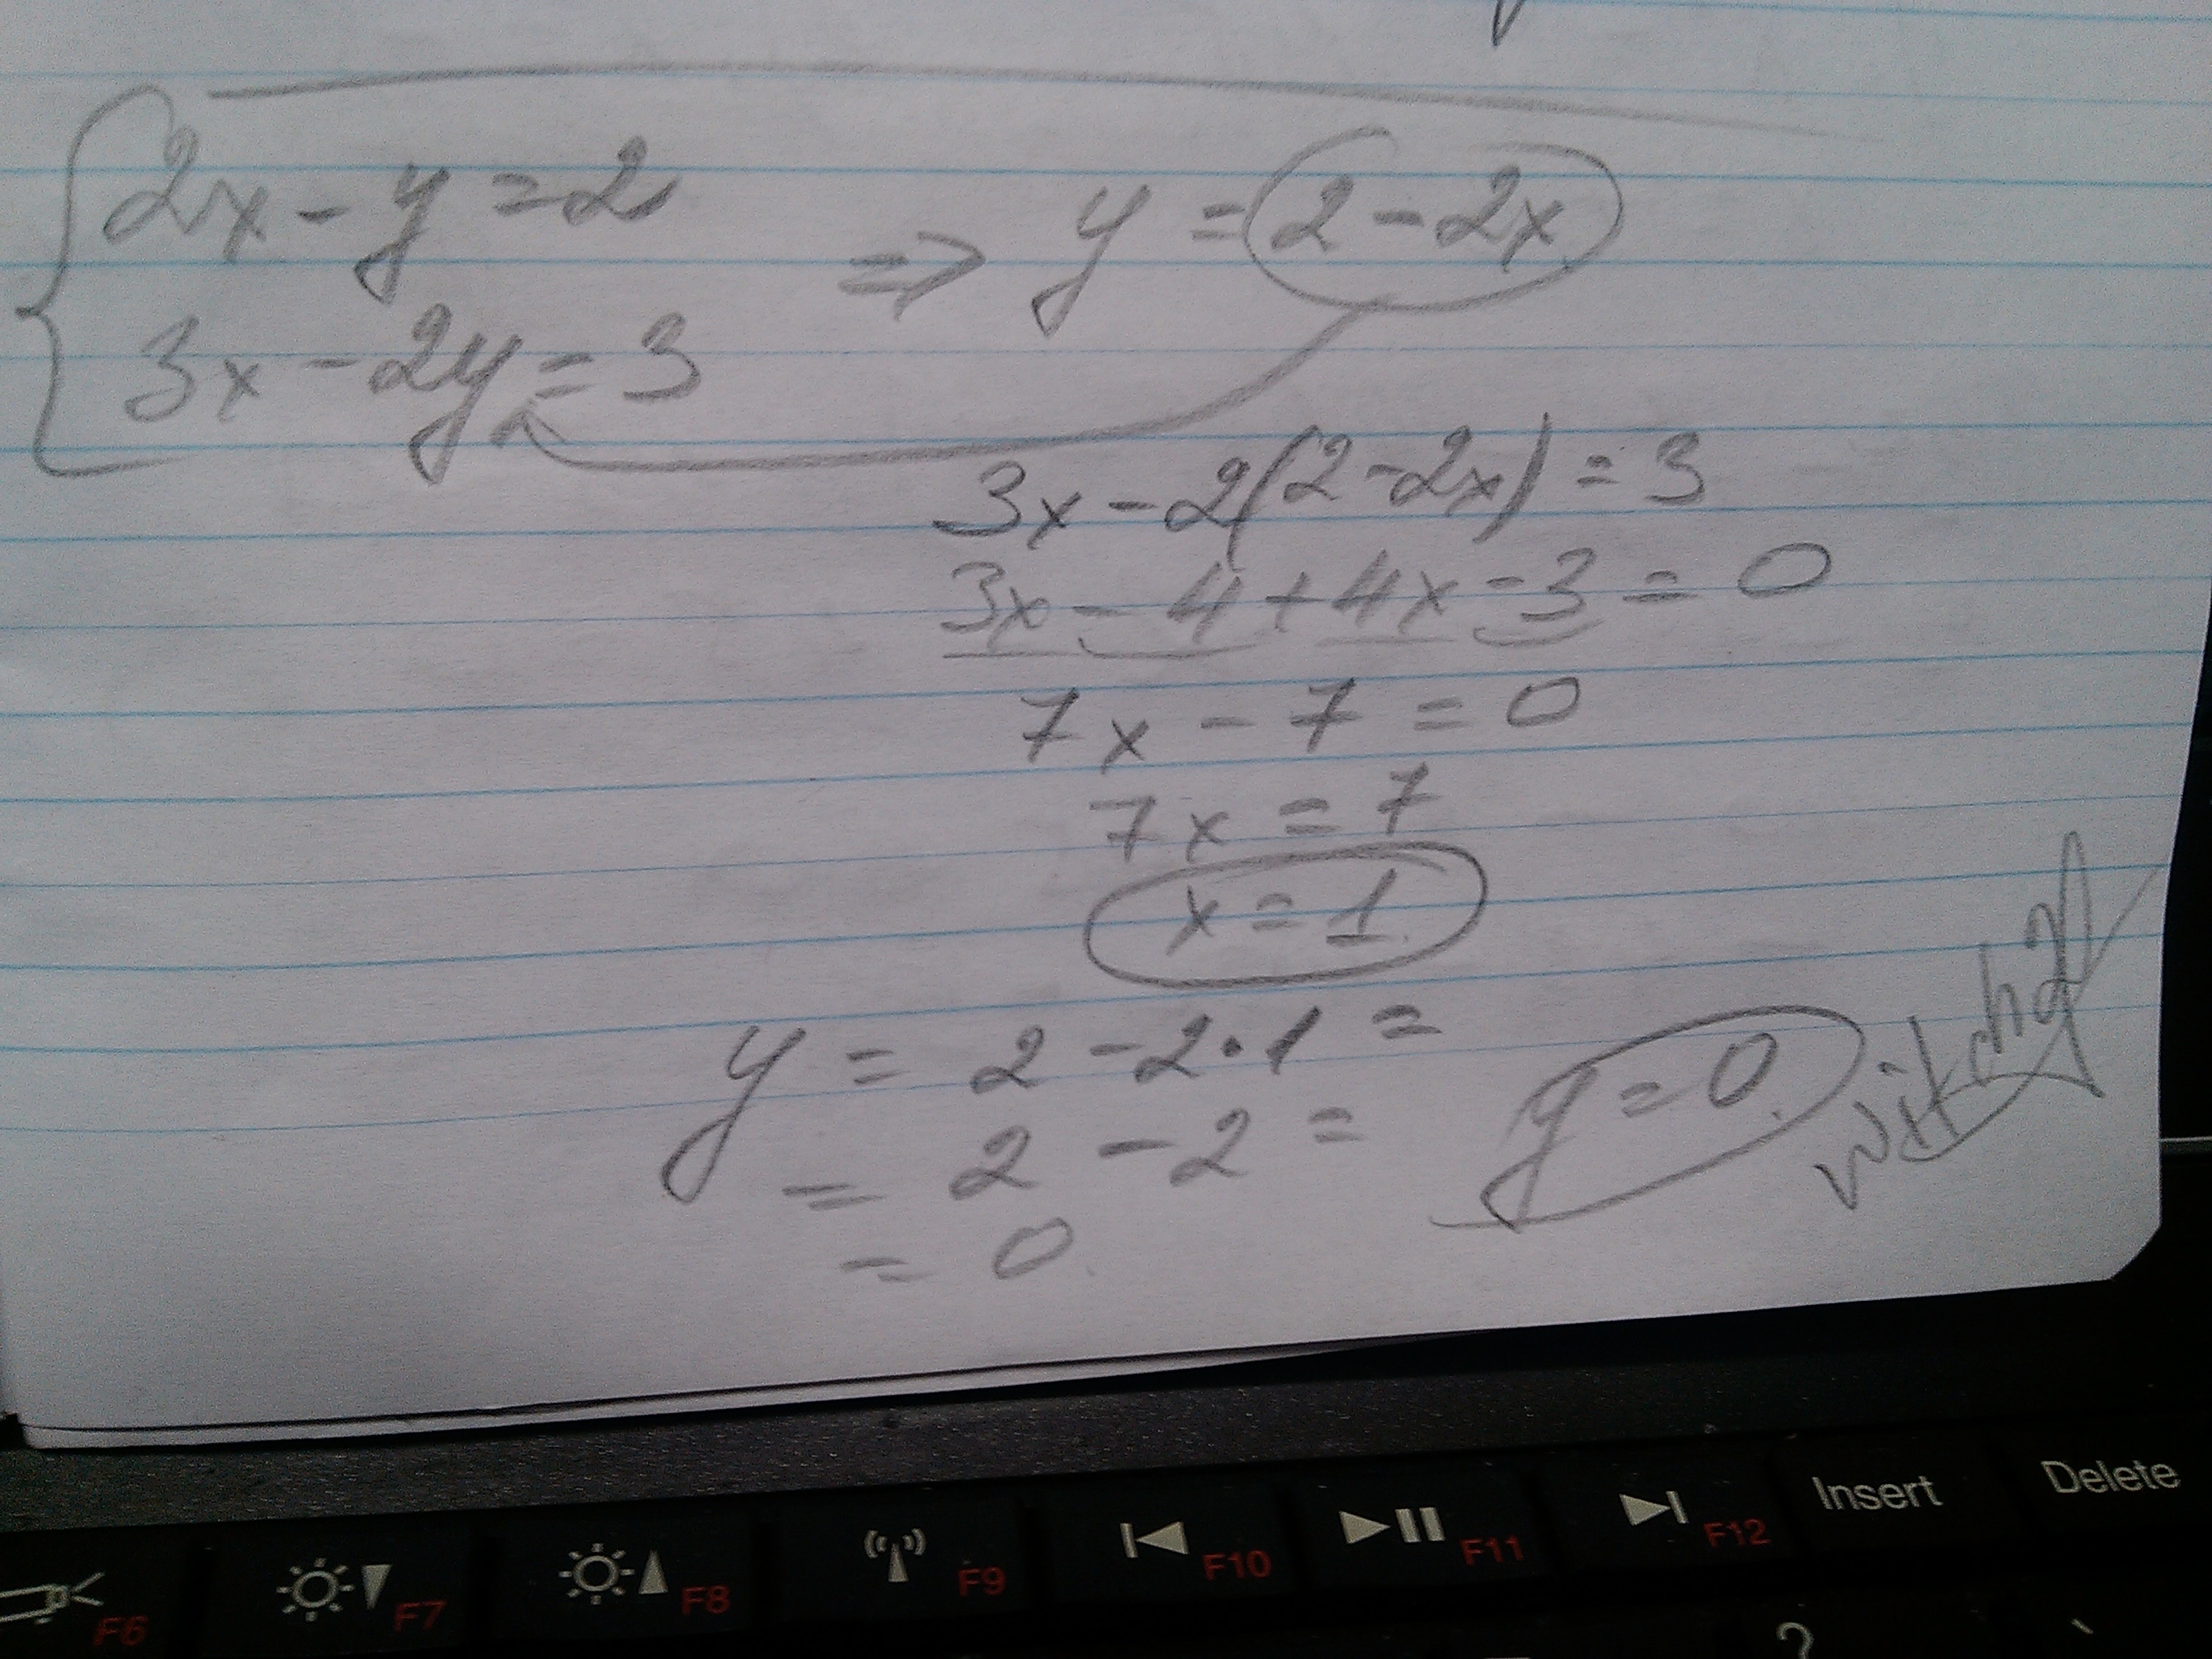 2x - y = 2
3x - 2y = 3
=> y = 2 - 2x
3x - 2(2 - 2x) = 3
3x - 4 + 4x - 3 = 0
7x - 7 = 0
7x = 7
x = 1
y = 2 - 2·1 =
= 2 - 2 =
= 0.
y = 0.
F6
F7
F8
F9
F10
F11
F12
Insert
Delete
?